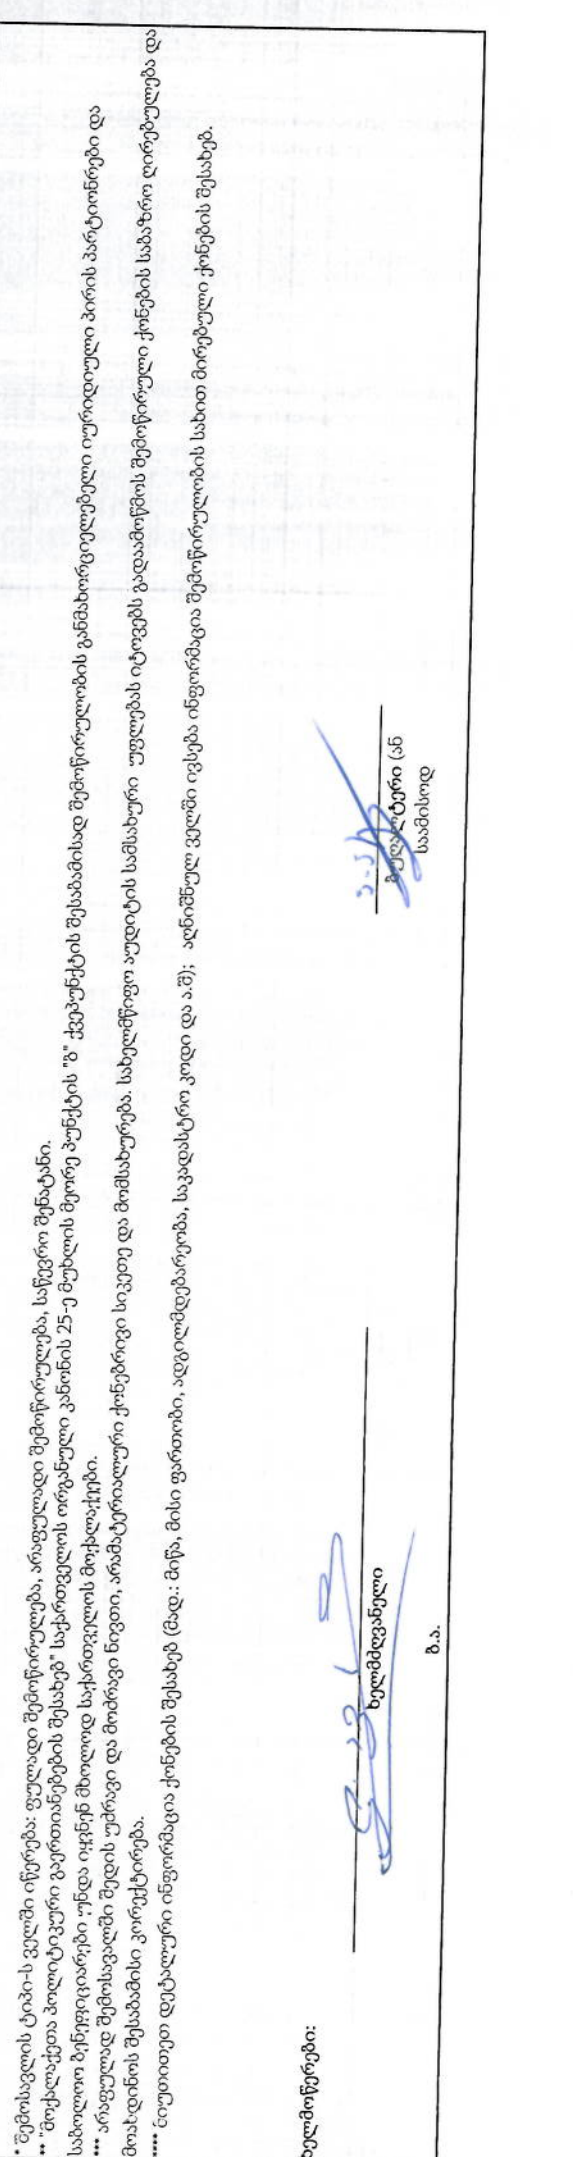 * შემოსავლის ტიპი-ს ველში იწერება: ფულადი შემოწირულება, არაფულადი შემოწირულება, საწევრო შენატანი.
** "მოქალაქეთა პოლიტიკური გაერთიანებების შესახებ" საქართველოს ორგანული კანონის 25-ე მუხლის მეორე პუნქტის "ბ" ქვეპუნქტის შესაბამისად შემოწირულობის განმახორციელებელი იურიდიული პირის პარტიონრები და
საბოლოო ბენეფიციარები უნდა იყვნენ მხოლოდ საქართველოს მოქალაქეები.
*** არაფულად შემოსავალში შედის უძრავი და მოძრავი ნივთი, არამატერიალური ქონებრივი სიკეთე და მომსახურება. სახელმწიფო აუდიტის სამსახური უფლებას იტოვებს გადაამოწმოს შემოწირული ქონების საბაზრო ღირებულება და
მოახდინოს შესაბამისი კორექტირება.
**** მიუთითეთ დეტალური ინფორმაცია ქონების შესახებ (მაგ.: მიწა, მისი ფართობი, ადგილმდებარეობა, საკადასტრო კოდი და ა.შ); აღნიშნულ ველში ივსება ინფორმაცია შემოწირულობის სახით მირებული ქონების შესახებ.
ელმოწერები:
ხელმძღვანელი
ბუღალტერი (ან
საამისოდ
ბ.ა.